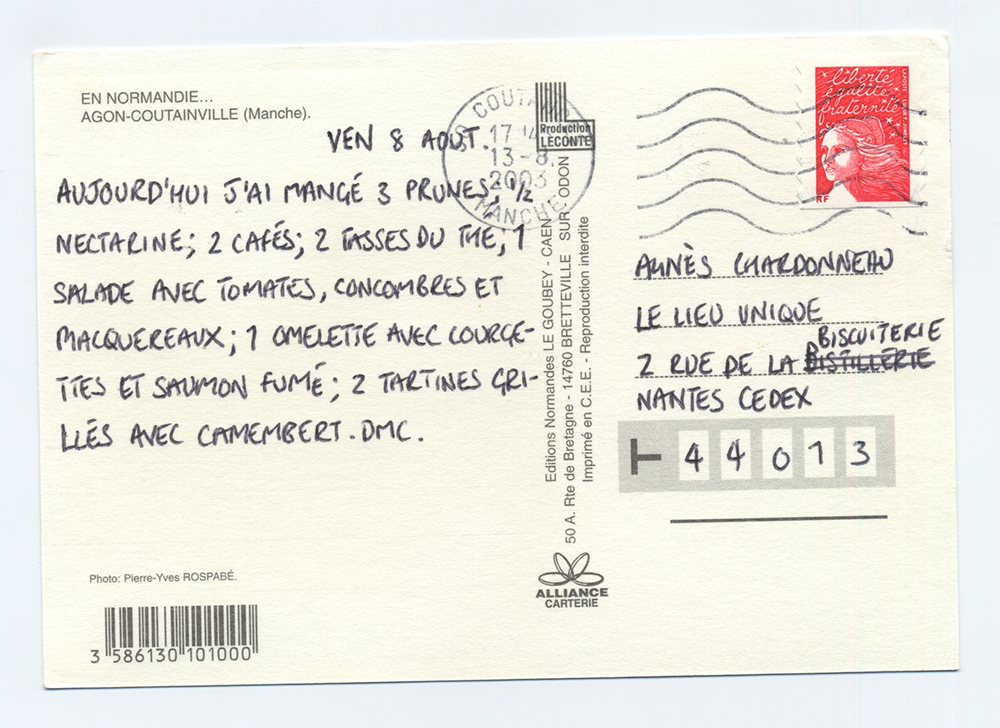 EN NORMANDIE...
AGON-COUTAINVILLE (Manche).
VEN 8 AOUT.
AUJOURD'HUI J'AI MANGÉ 3 PRUNES, 1/2
NECTARINE; 2 CAFÉS; 2 TASSES DU THE, 1
SALADE AVEC TOMATES, CONCOMBRES ET
MACQUEREAUX; 1 OMELETTE AVEC COURGE-
TTES ET SAUMON FUMÉ; 2 TARTINES GRI-
LLÉS AVEC CAMEMBERT. DMC.
Photo: Pierre-Yves ROSPABÉ.
3 586130 101000
Production
LECONTE
13-8
2003
MANCHE
Editions Normandes LE GOUBEY - CAEN
50 A. Rte de Bretagne - 14760 BRETTEVILLE SUR ODON
Imprimé en C.E.E. - Reproduction interdite
ALLIANCE
CARTERIE
liberté
égalité
fraternité
RF
AGNÈS CHARDONNEAU
LE LIEU UNIQUE
BISCUITERIE
2 RUE DE LA DISTILLERIE
NANTES CEDEX
44013